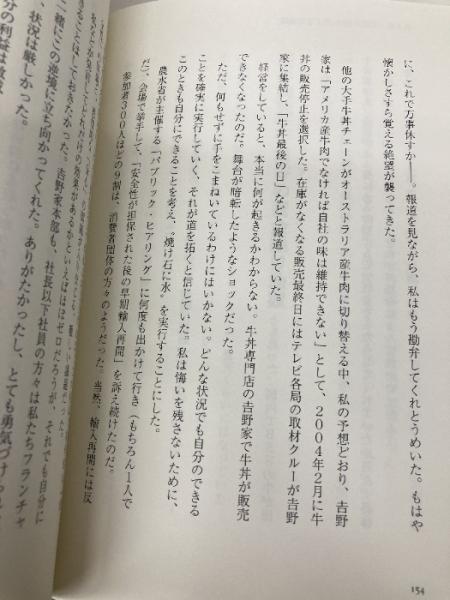 に、これで万事休すか――。報道を見ながら、私はもう勘弁してくれとうめいた。もはや
懐かしささえ覚える絶望が襲ってきた。
他の大手牛丼チェーンがオーストラリア産牛肉に切り替える中、私の予想どおり、吉野
家は「アメリカ産牛肉でなければ自社の味は維持できない」として、2004年2月に牛
丼の販売停止を選択した。在庫がなくなる販売最終日にはテレビ各局の取材クルーが吉野
家に集結し、「牛丼最後の日」などと報道していた。
経営をしていると、本当に何が起きるかわからない。牛丼専門店の吉野家で牛丼が販売
できなくなったのだ。舞台が暗転したようなショックだった。
ただ、何もせずに手をこまねいているわけにはいかない。どんな状況でも自分のできる
ことを確実に実行していく、それが道を拓くと信じていた。私は悔いを残さないために、
このときも自分にできることを考え、“焼け石に水”を実行することにした。
農水省が主催する「パブリック・ヒアリング」に何度も出かけて行き(もちろん1人で
だ)、会場で挙手して、「安全性が担保された後の早期輸入再開」を訴え続けたのだ。
参加者300人ほどの9割は、消費者団体の方々のようだった。当然、輸入再開には反
れだけの効果があるかといえばほぼゼロだろうが、それでも自分に
きることはしておきたかった。吉野家本部も、社長以下社員の方々は私たちフランチャ
一緒にこの逆境に立ち向かってくれた。ありがたかったし、とても勇気づけ
状況は厳しかった。
分の利益は激減
154